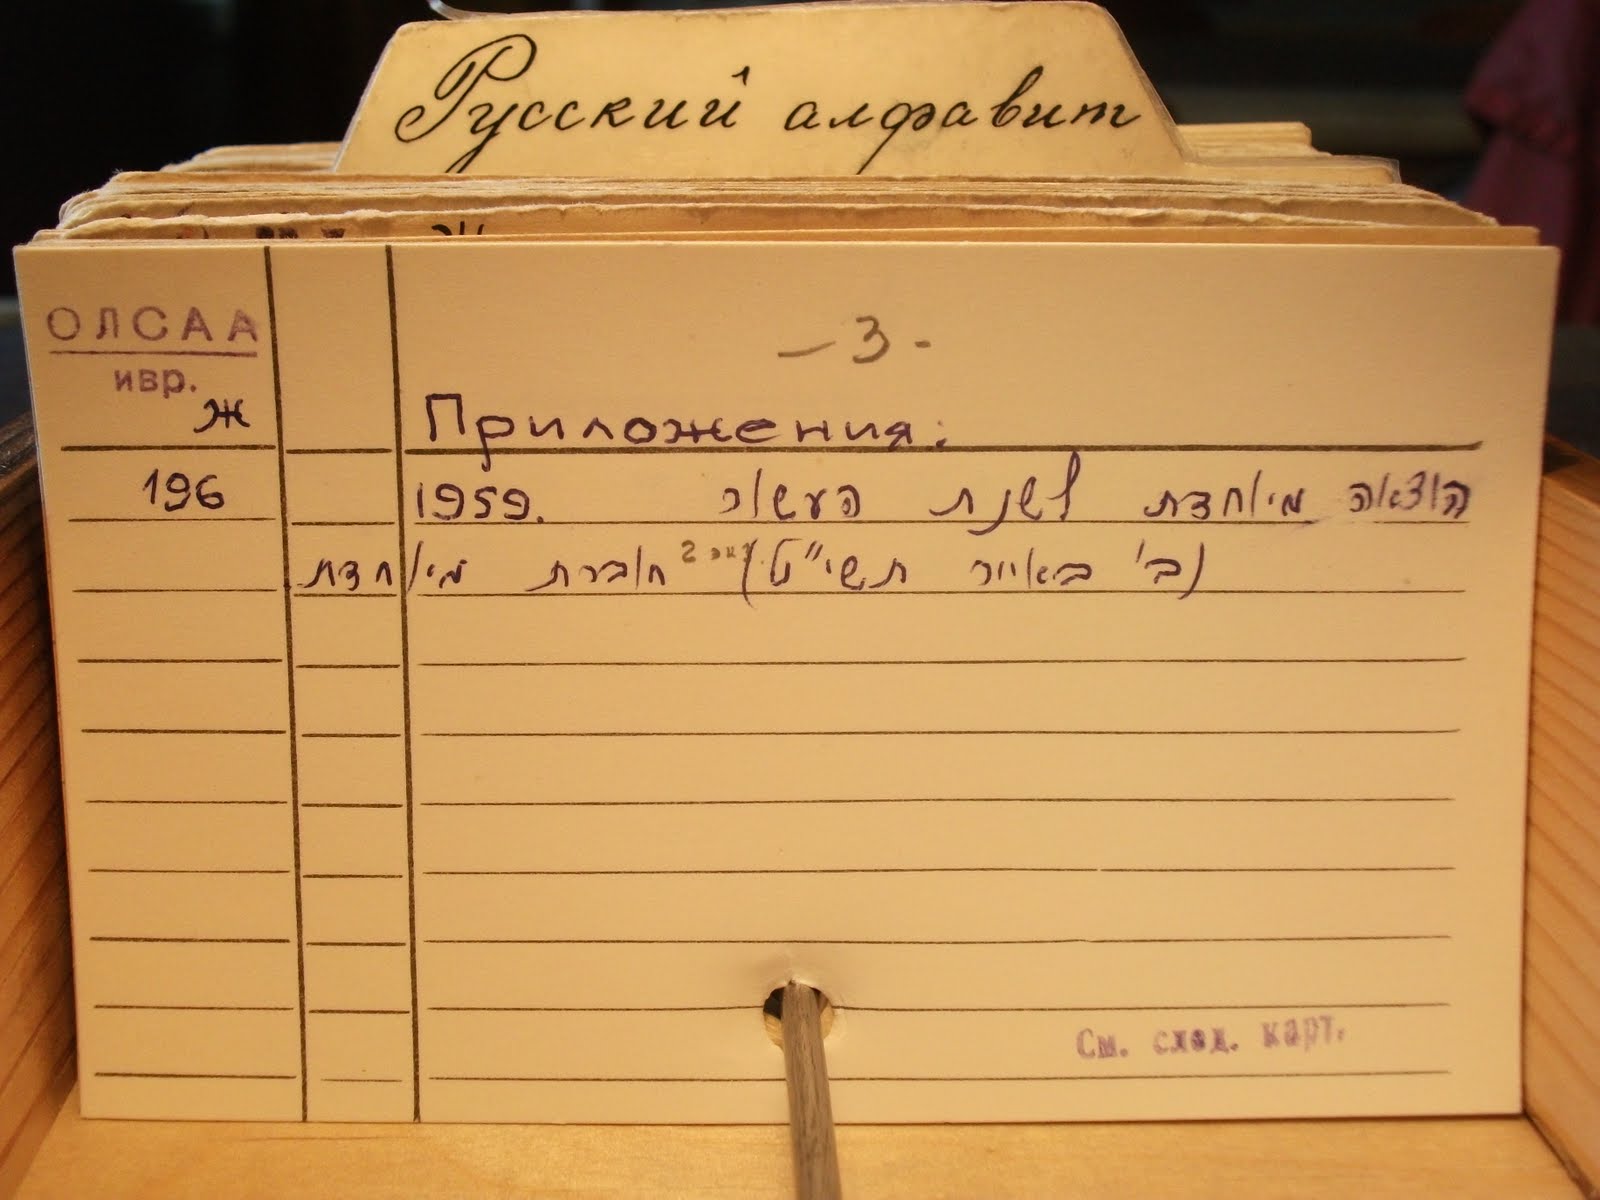 Русский алфавит
Ж
ОЛСАА
ивр.
Ж
196
– 3 -
Приложения:
1959. הוצאה מיוחדת לשנת העשור
(ב' באייר תשי"ט) 2 экз חוברת מיוחדת
См. след. карт.